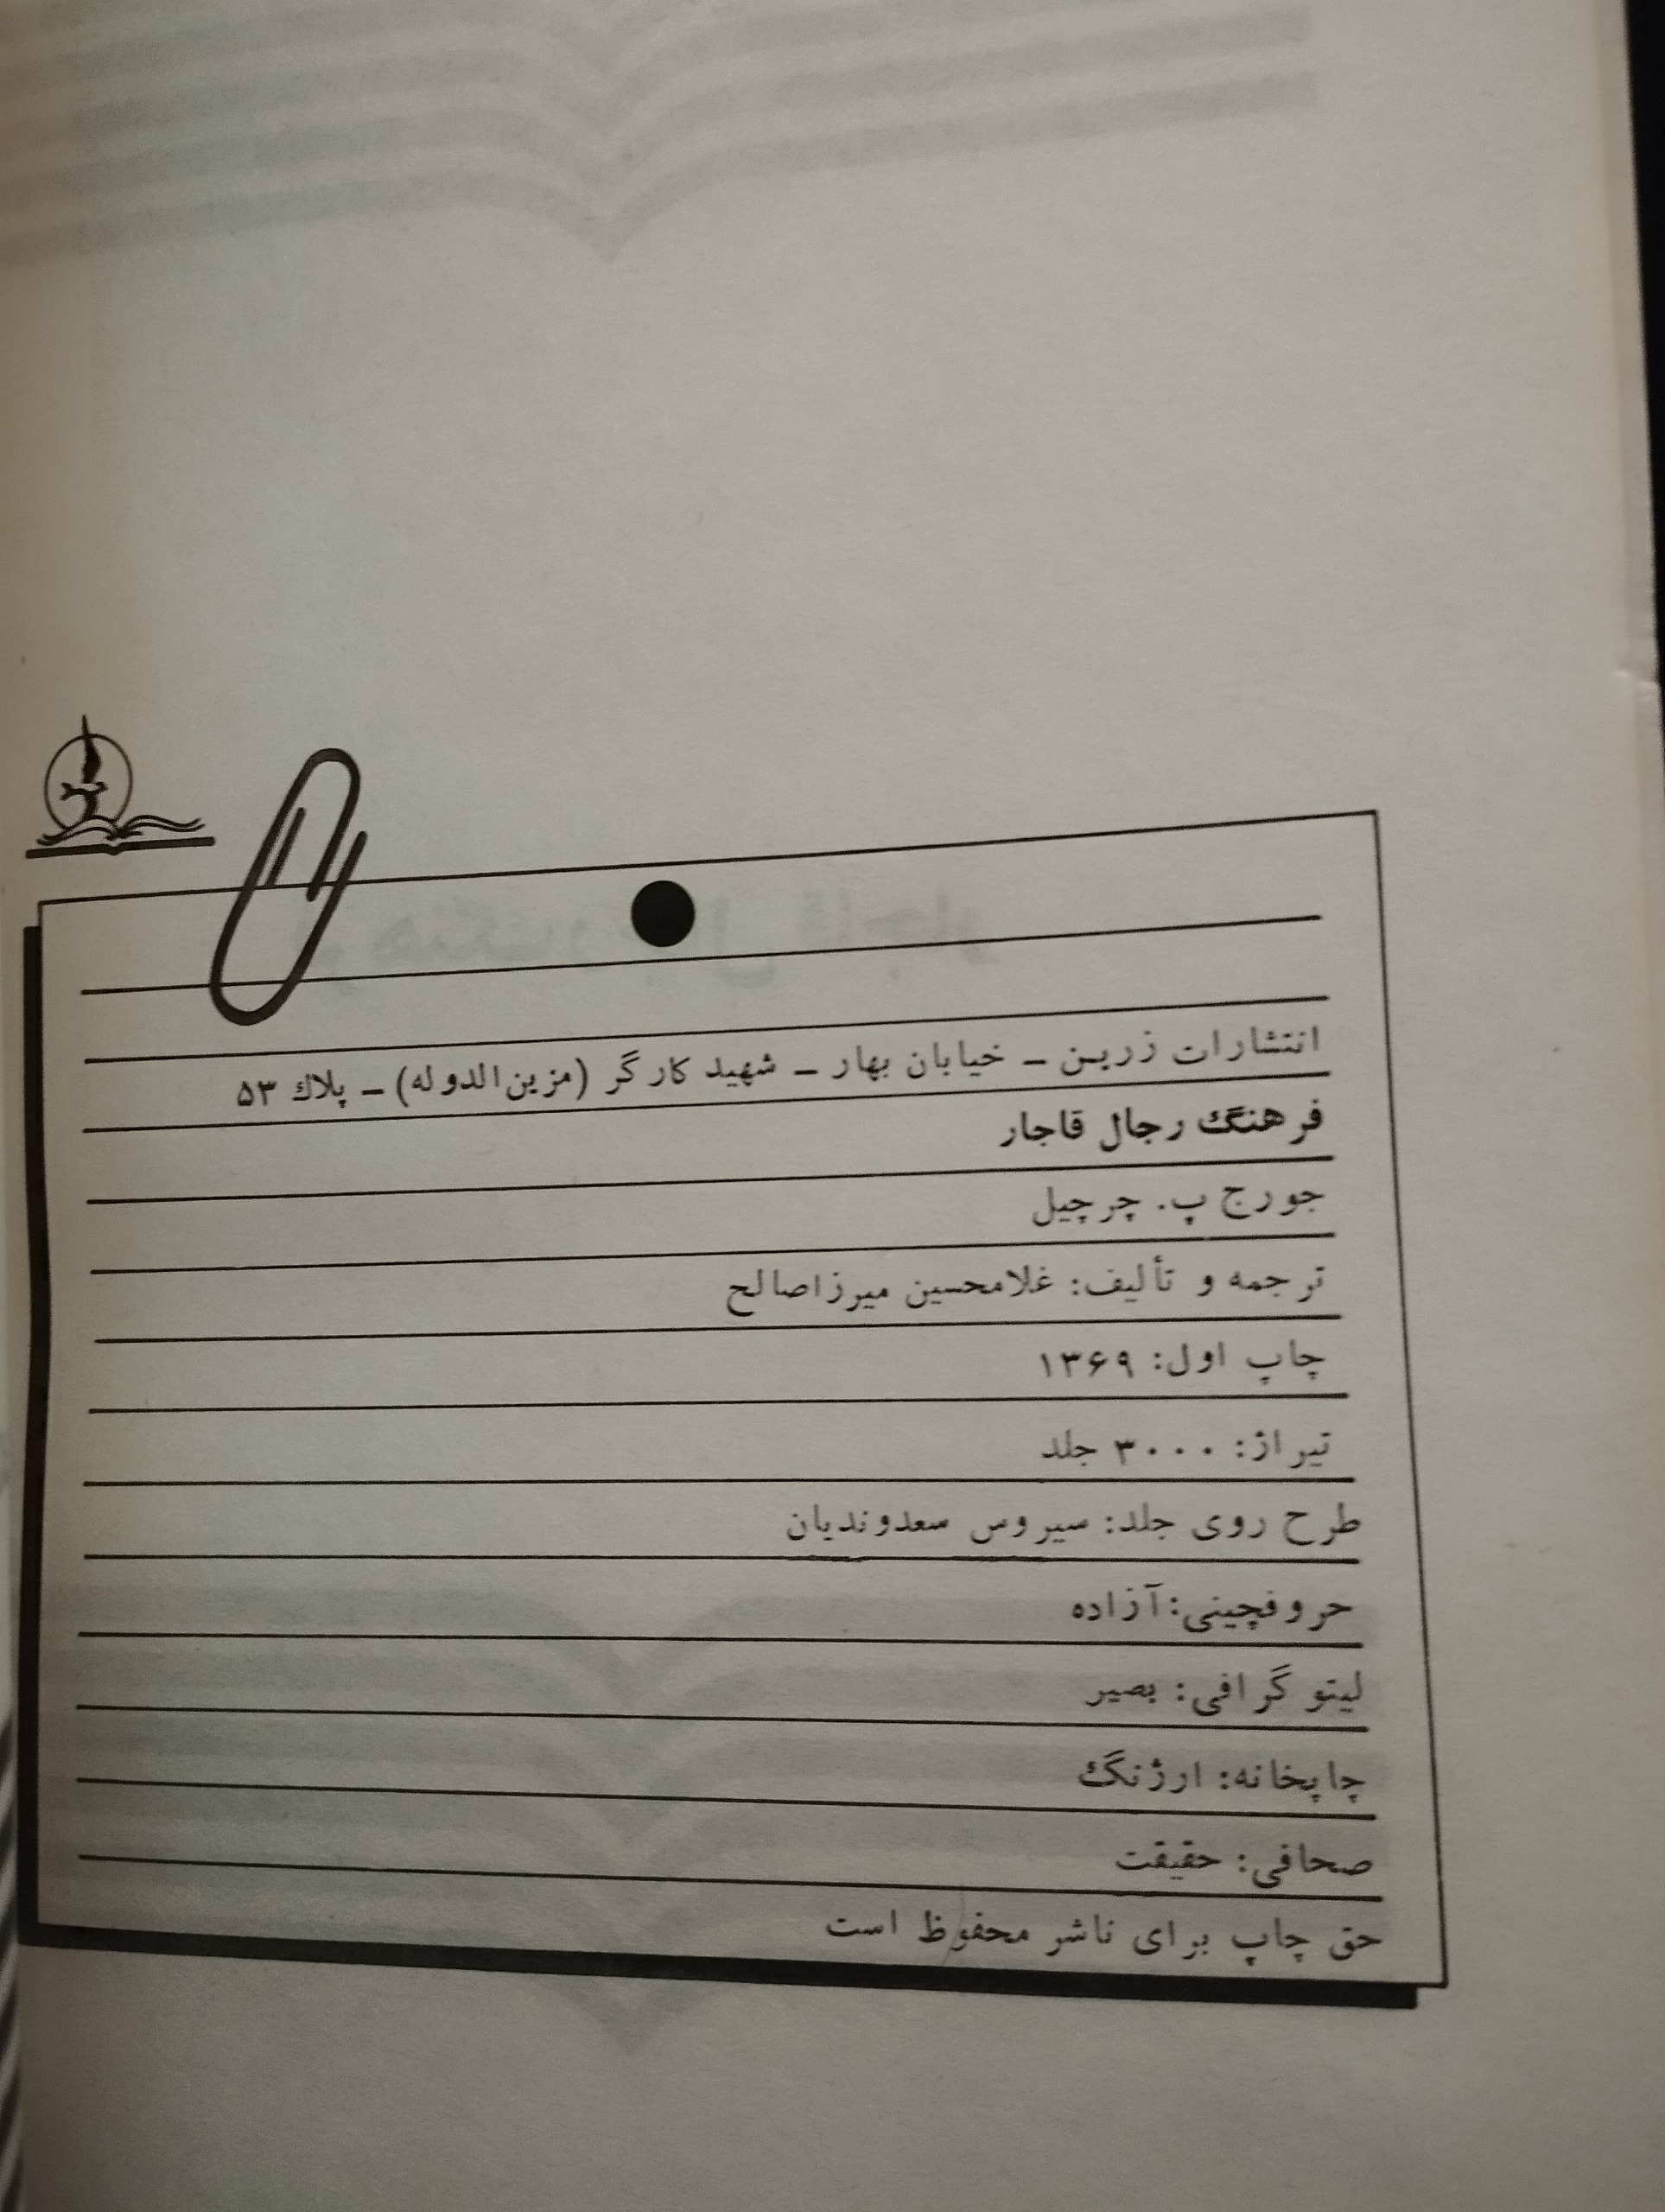 انتشارات زرین ـ خیابان بهار ـ شهید کارگر (مزین‌الدوله) ـ پلاك ۵۳
فرهنگ رجال قاجار
جورج پ. چرچیل
ترجمه و تألیف: غلامحسین میرزاصالح
چاپ اول: ۱۳۶۹
تیراژ: ۳۰۰۰ جلد
طرح روی جلد: سیروس سعدوندیان
حروفچینی: آزاده
لیتوگرافی: بصیر
چاپخانه: ارژنگ
صحافی: حقیقت
حق چاپ برای ناشر محفوظ است